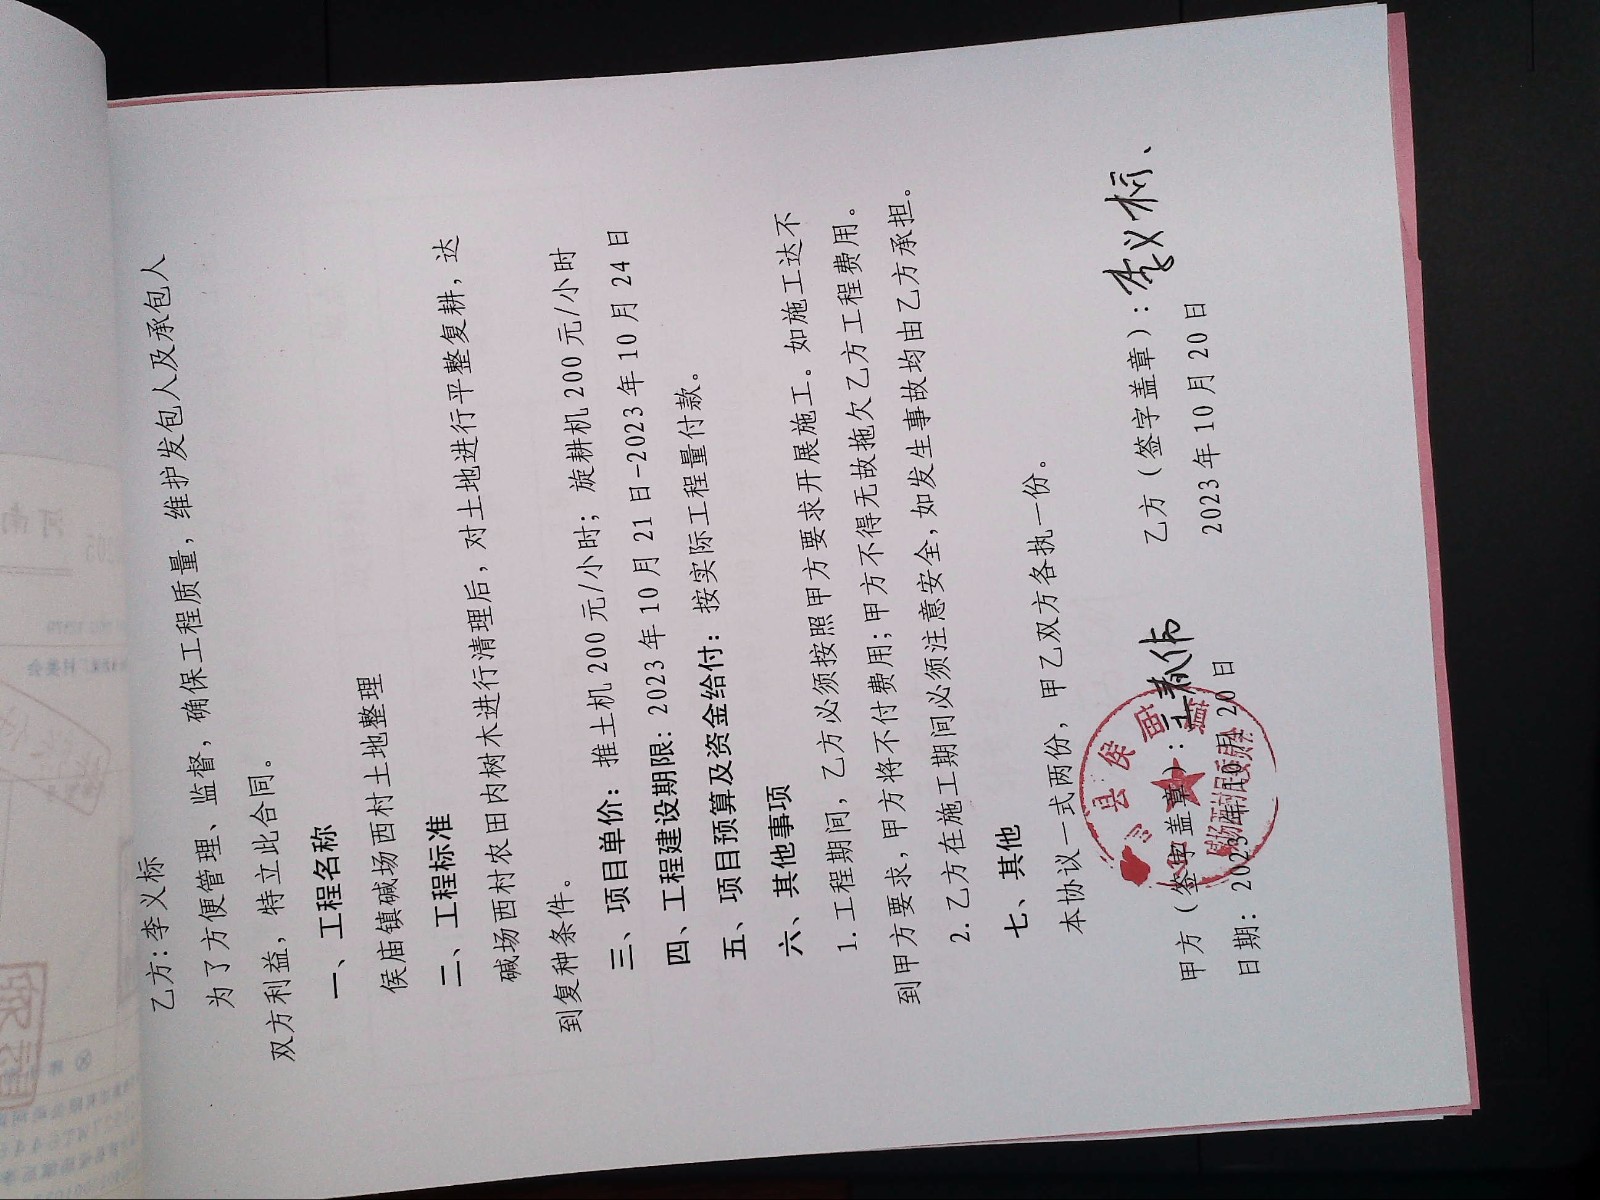 乙方:李义标
为了方便管理、监督,确保工程质量,维护发包人及承包人
双方利益,特立此合同。
一、工程名称
侯庙镇碱场西村土地整理
二、工程标准
碱场西村农田内树木进行清理后,对土地进行平整复耕,达
到复种条件。
三、项目单价：推土机200元/小时；旋耕机200元/小时
四、工程建设期限:2023年10月21日-2023年10月24日
五、项目预算及资金给付：按实际工程量付款。
六、其他事项
1.工程期间,乙方必须按照甲方要求开展施工。如施工达不
到甲方要求,甲方将不付费用;甲方不得无故拖欠乙方工程费用。
2.乙方在施工期间必须注意安全,如发生事故均由乙方承担.
七、其他
本协议一式两份,甲乙双方各执一份。
甲方（签字盖章）: 乙方（签字盖章）:李义标、
日期：2023年10月20日 2023年10月20日
县侯庙镇